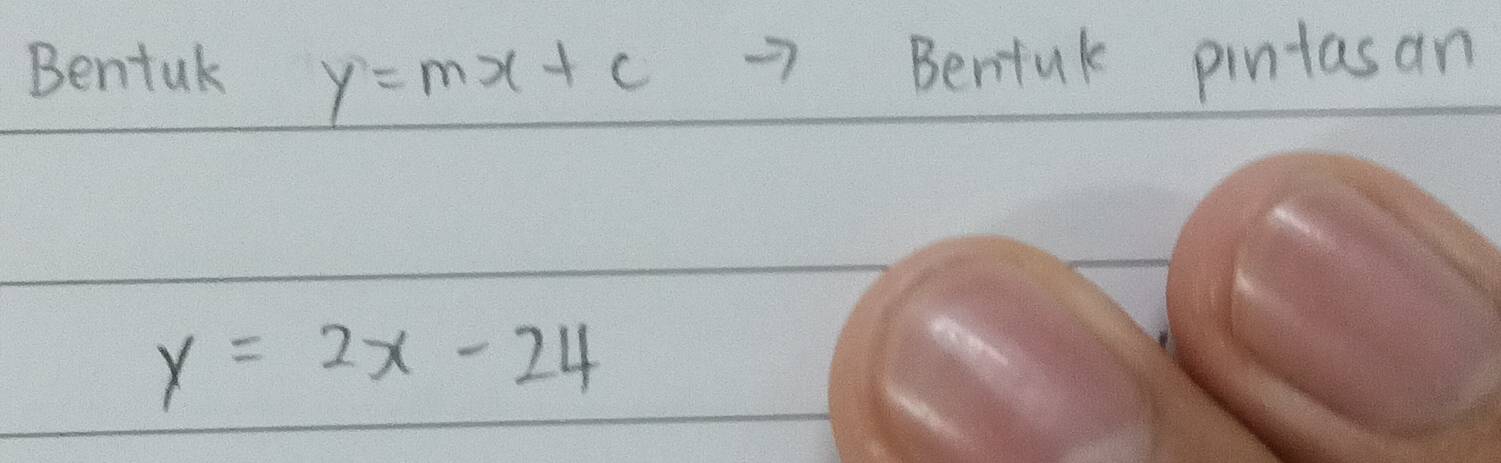 Bentuk y = mx + c → Bentuk pintasan
y = 2x - 24